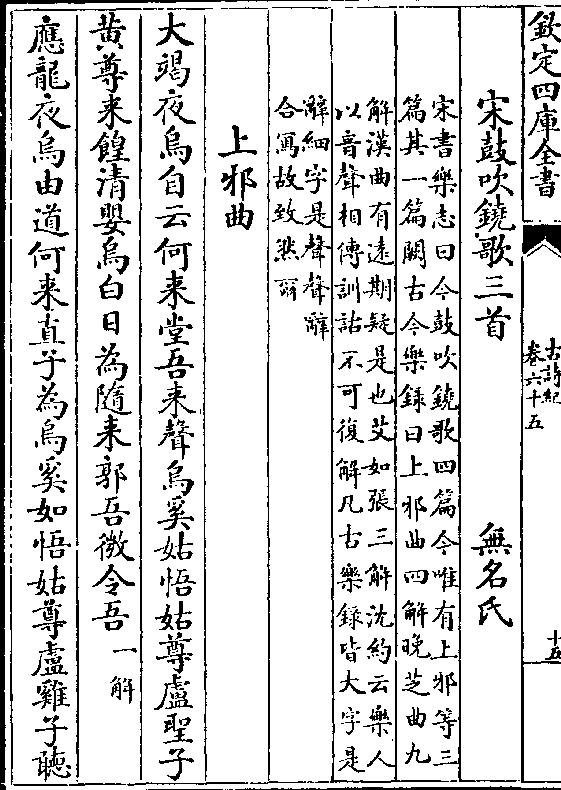 欽定四庫全書
古詩紀
卷六十五
十五
宋鼓吹鐃歌三首 無名氏
宋書樂志曰今鼓吹鐃歌四篇今唯有上邪等三
篇其一篇闕古今樂録曰上邪曲四解晚芝曲九
解漢曲有遠期疑是也艾如張三解沈約云樂人
以音聲相傳訓詁不可復解凡古樂録皆大字是
辭細字是聲聲辭
合寫故致然爾
上邪曲
大竭夜烏自云何来堂吾来聲烏奚姑悟姑尊盧聖子
黄尊来餭清嬰烏白日為隨来郭吾微令吾 一解
應龍夜烏由道何来直子為烏奚如悟姑尊盧雞子聴